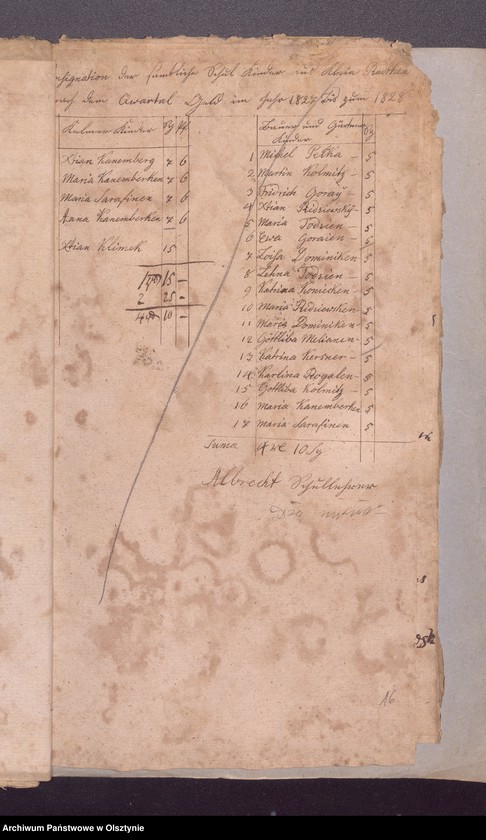 der sämtliche Schul Kinder aus Klein
nach dem Quartal Geld im Jahr 1827 bis zum 1828
Kulmer Kinder Sg Pf
Xtian Kanemberg 7 6
Maria Kanemberken 7 6
Maria Sarafinen 7 6
Anna Kanemberken 7 6
Xtian Klimek 15
15 –
2 25 –
4 10 –
Bauer und Gärtner Kinder Sg
1 Michel Petka – 5
2 Martin Kolmitz – 5
3 Fridrich Goray – 5
4 Xtian Ridziewsky – 5
5 Maria Todzien – 5
6 Ewa Goraien – 5
7 Loisa Dominiken 5
8 Lehna Todzien – 5
9 Katrina Koniecken – 5
10 Maria Ridziewsken 5
11 Maria Dominiken – 5
12 Gottliba Milianen – 5
13 Katrina Kersner – 5
14 Karlina Rogalen – 5
15 Gottliba Kolmitz – 5
16 Maria Kanemberken 5
17 Maria Sarafinen 5
Suma 4 10 Sg
Albrecht Schullehrer
16
Archiwum Państwowe w Olsztynie